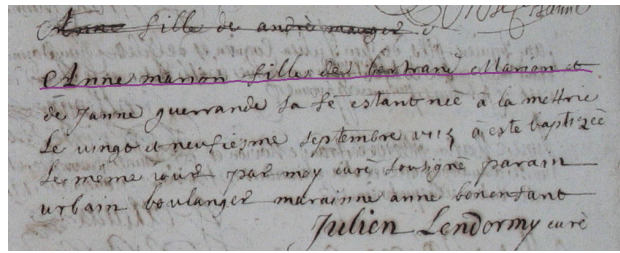 Anne fille de andre mauger
Anne marion fille de bertran Marion et
de Janne guerrande sa fe estant neè à la mettrie
Le vingt et neufiesme septembre 1715 à este baptizeè
Le même iour par moy curè sousignè parain
urbain boulanger marainne anne bonenfant
Julien Lendormy curè